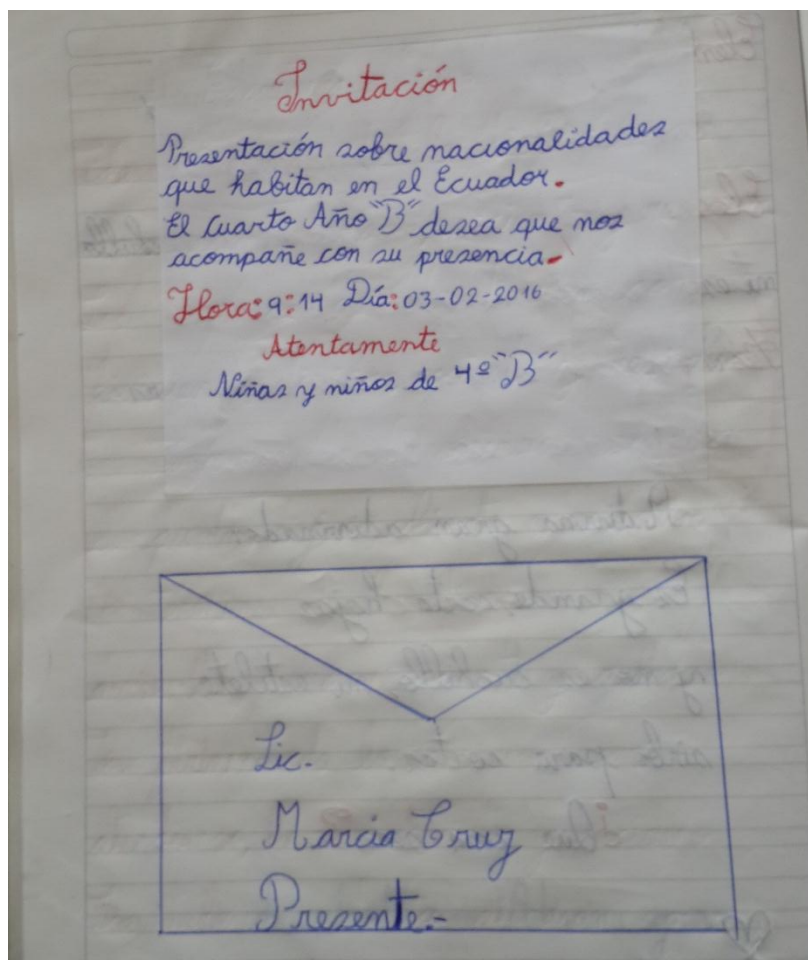 Invitación
Presentación sobre nacionalidades
que habitan en el Ecuador.
El Cuarto Año "B" desea que nos
acompañe con su presencia.
Hora: 9:14 Día: 03-02-2016
Atentamente
Niñas y niños de 4º "B"
Lic.
Marcia Cruz
Presente.-